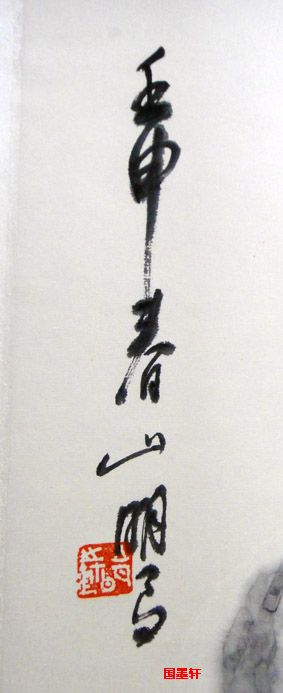 壬申春山明写
国墨轩